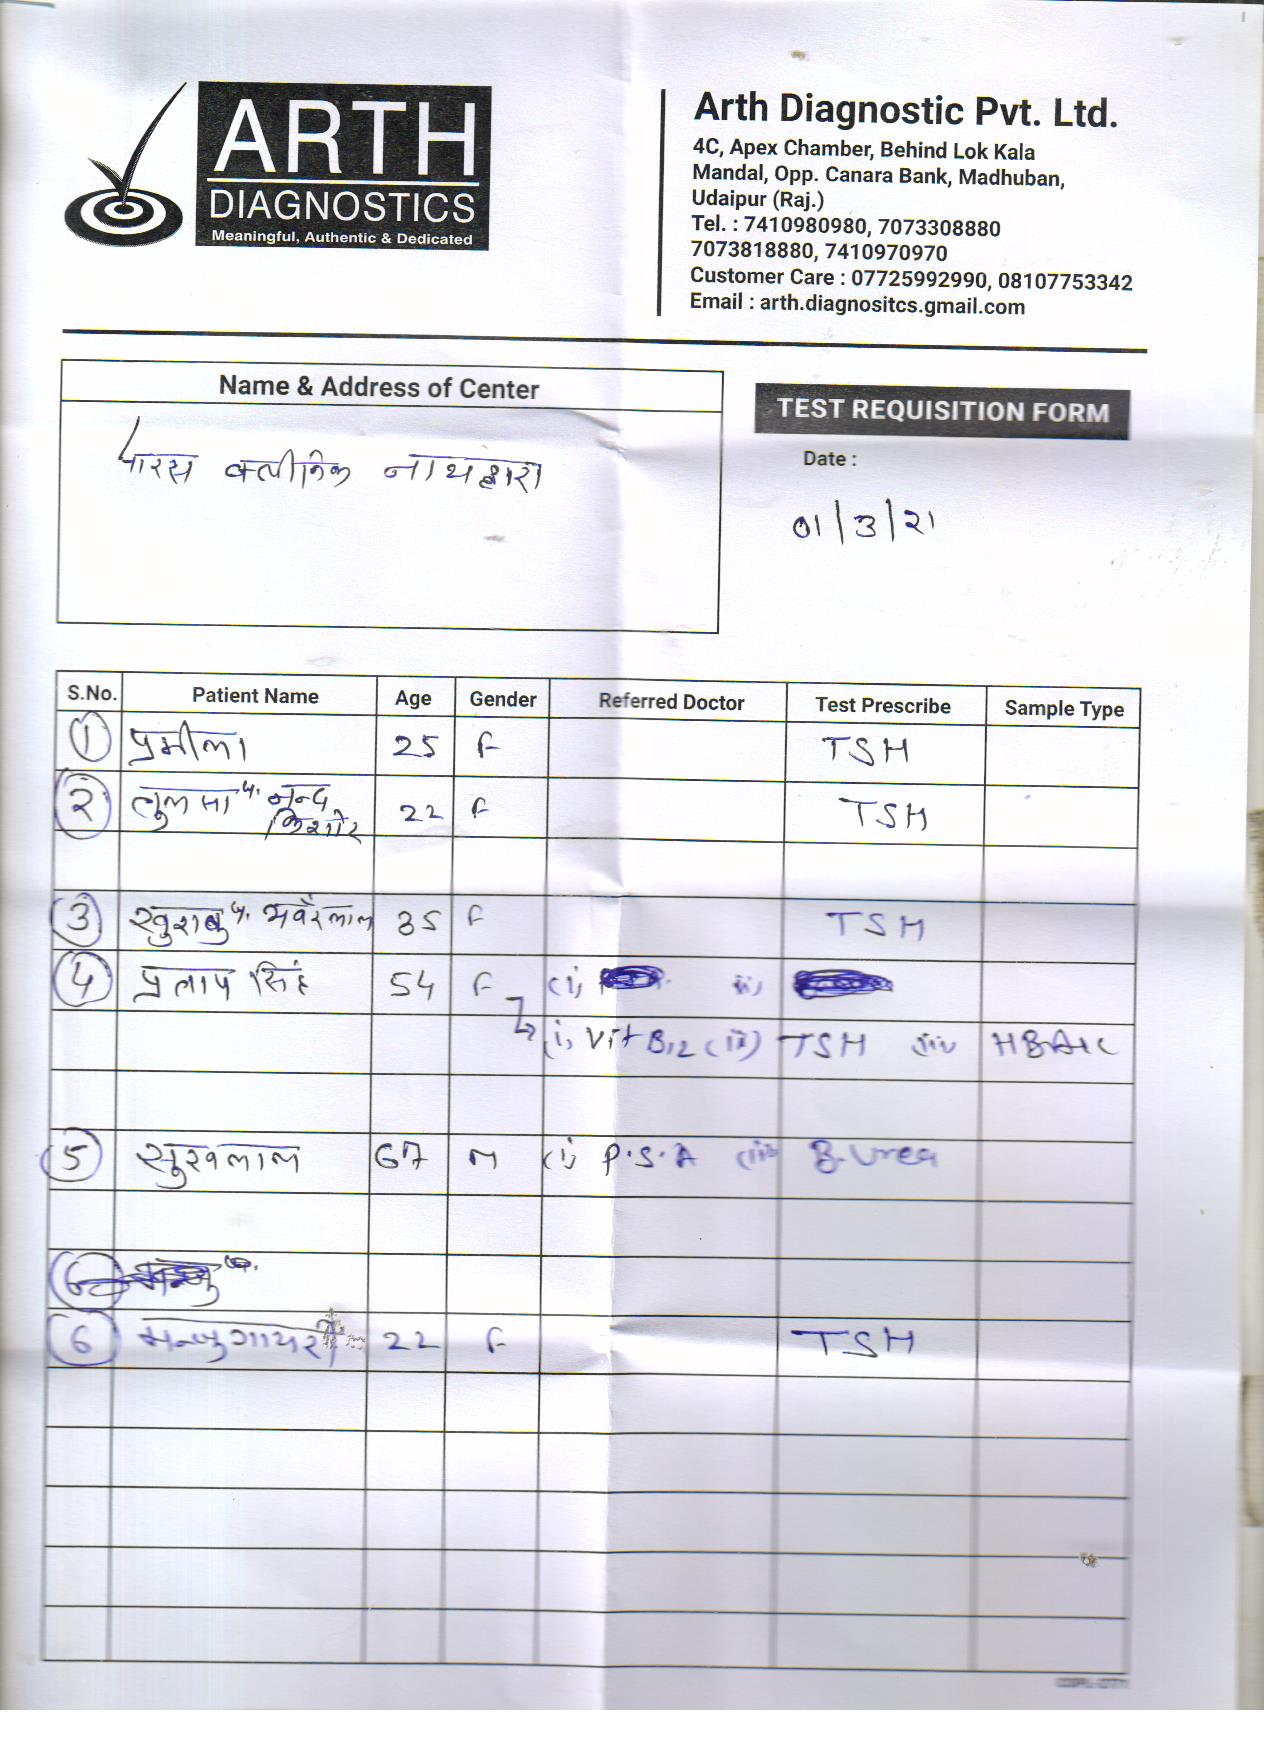 ARTH
DIAGNOSTICS
Meaningful, Authentic & Dedicated
Arth Diagnostic Pvt. Ltd.
4C, Apex Chamber, Behind Lok Kala
Mandal, Opp. Canara Bank, Madhuban,
Udaipur (Raj.)
Tel. : 7410980980, 7073308880
7073818880, 7410970970
Customer Care : 07725992990, 08107753342
Email : arth.diagnositcs.gmail.com
Name & Address of Center
पारस क्लीनिक नाथद्वारा
TEST REQUISITION FORM
Date :
01/3/21
S.No. Patient Name Age Gender Referred Doctor Test Prescribe Sample Type
1 प्रमीला 25 F TSH
2 नन्द 22 F TSH
किशोर
3 खुशबु भवंरलाल 35 F TSH
4 प्रताप सिंह 54 F (i) ii)
(i) Vit B12 (ii) TSH iii HBA1C
5 सुखलाल 67 M (i) P.S.A (ii) B.Urea
6
6 22 F TSH